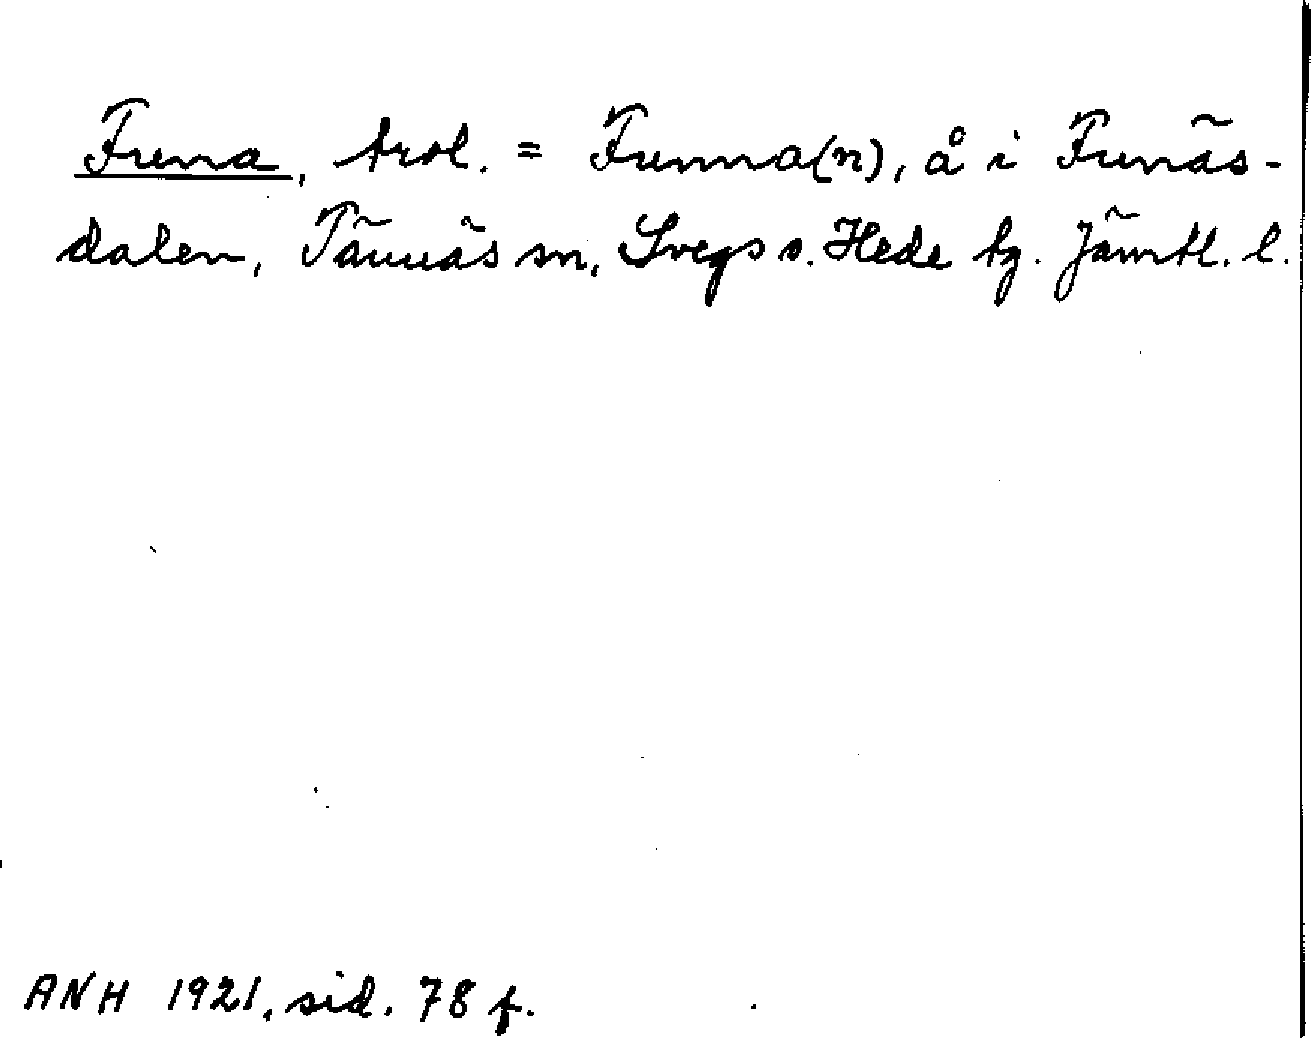 Funa, trol. = Funna(n), å i Funäs-
dalen, Tännäs sn, Svegs o. Hede tg. Jämtl. l.
ANH 1921, sid. 78 f.